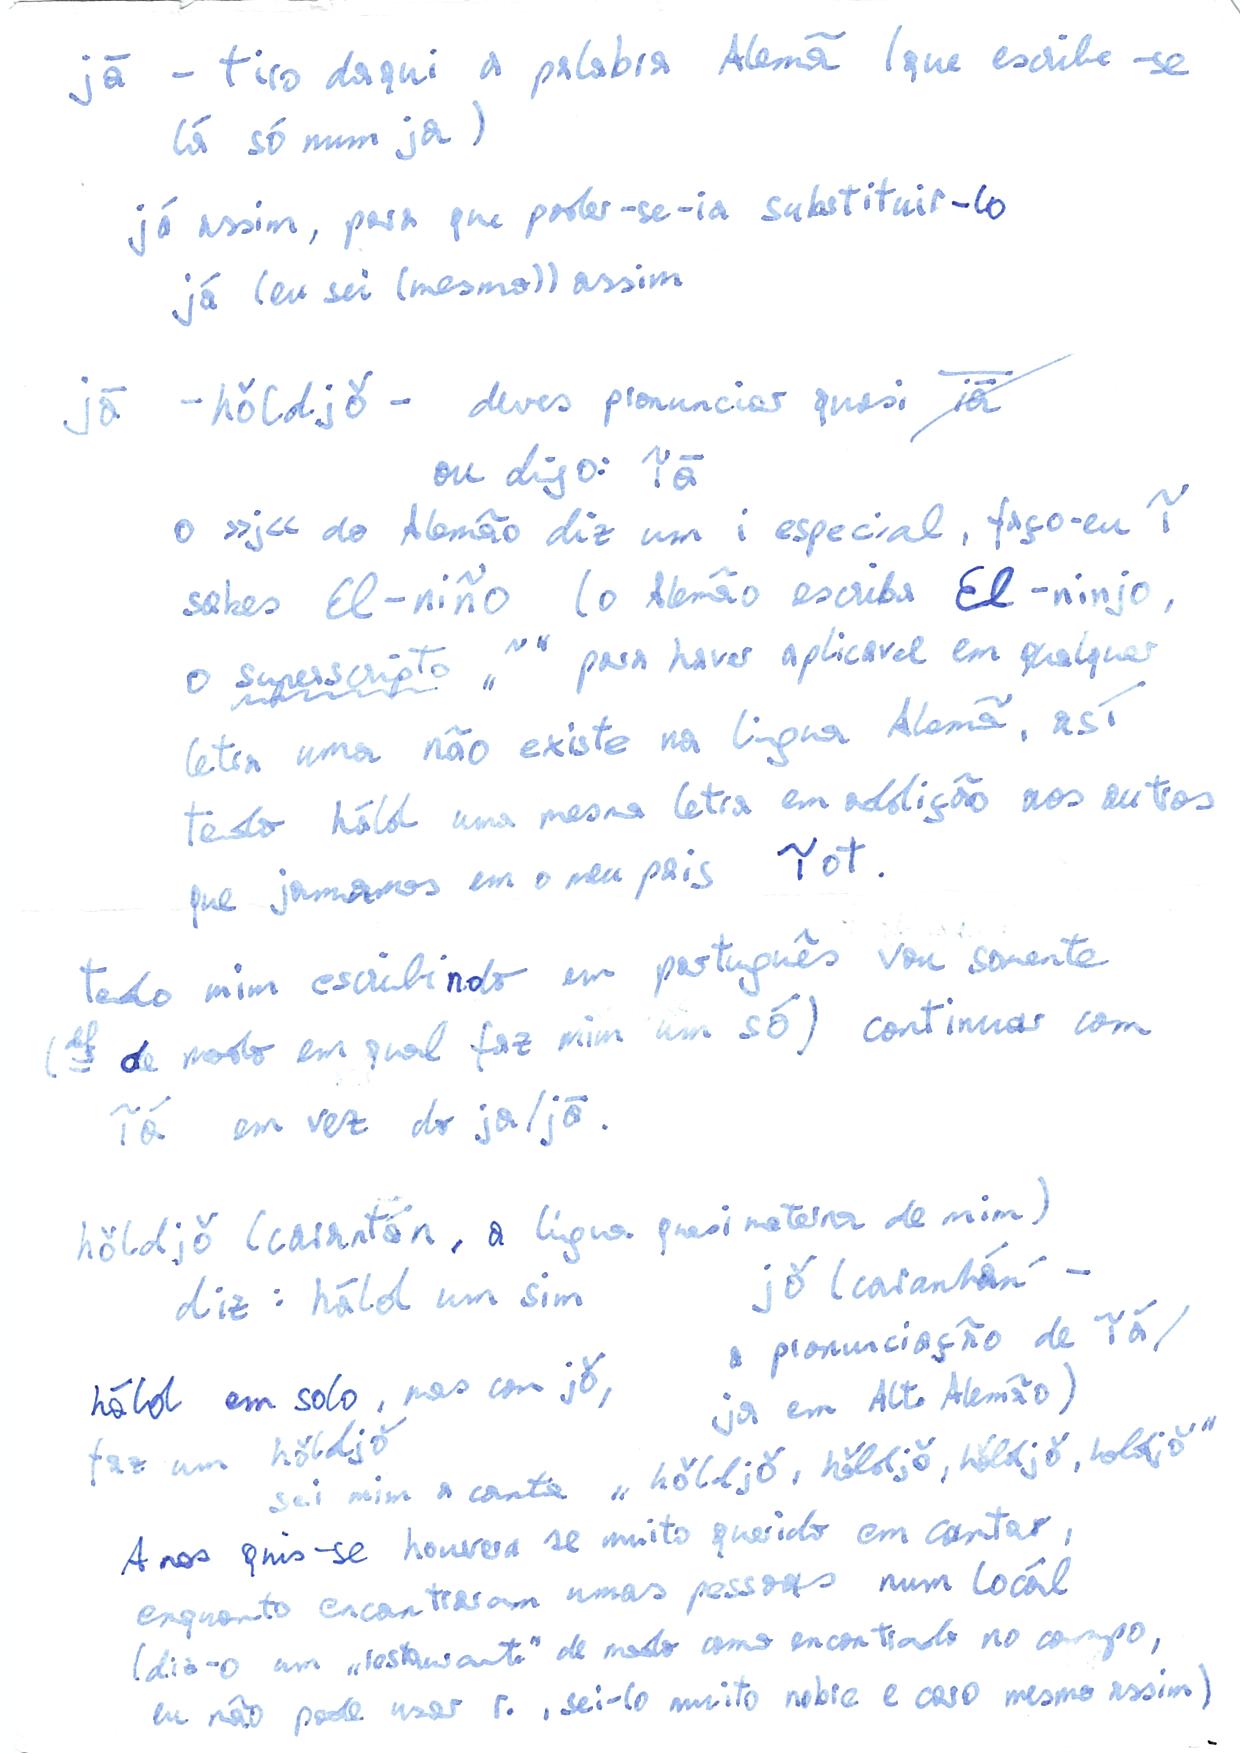 jā - tiro daqui a palabra Alemã (que escribe-se
lá só num ja)
já assim, para que poder-se-ia substituir-lo
já (eu sei (mesmo)) assim
jā - hŏldjŏ - deves pronunciar quasi iā
ou digo: ĩā
o »j« do Alemão diz um i especial, faço-eu ĩ
sabes El-niño (o Alemão escriba El-ninjo,
o superscripto „~“ para haver aplicavel em qualquer
letra uma não existe na lingua Alemã, así
tendo háld uma mesma letra em addição aos outros
que jamamos em o meu pais ĩot.
tendo mim escribindo em portuguẽs vou somente
( de modo em qual faz mim um só) continuar com
ĩá em vez do ja/jā.
hŏldjŏ (carantán, a lígua quasi materna de mim)
diz: háld um sim
jŏ (carantán -
a pronunciação de ĩá/
ja em Alto Alemão)
háld em solo, mas con jŏ,
faz um hŏldjŏ
sei mim a canta „hŏldjŏ, hŏldjŏ, hŏldjŏ, holdjŏ“
A nos quis-se houvera se muito querido em cantar,
enquanto encantraram umas pessoas num locál
(diz-o um „restaurante“ de modo como encontrado no campo,
eu não pode usar r., sei-lo muito nobre e caro mesmo assim)